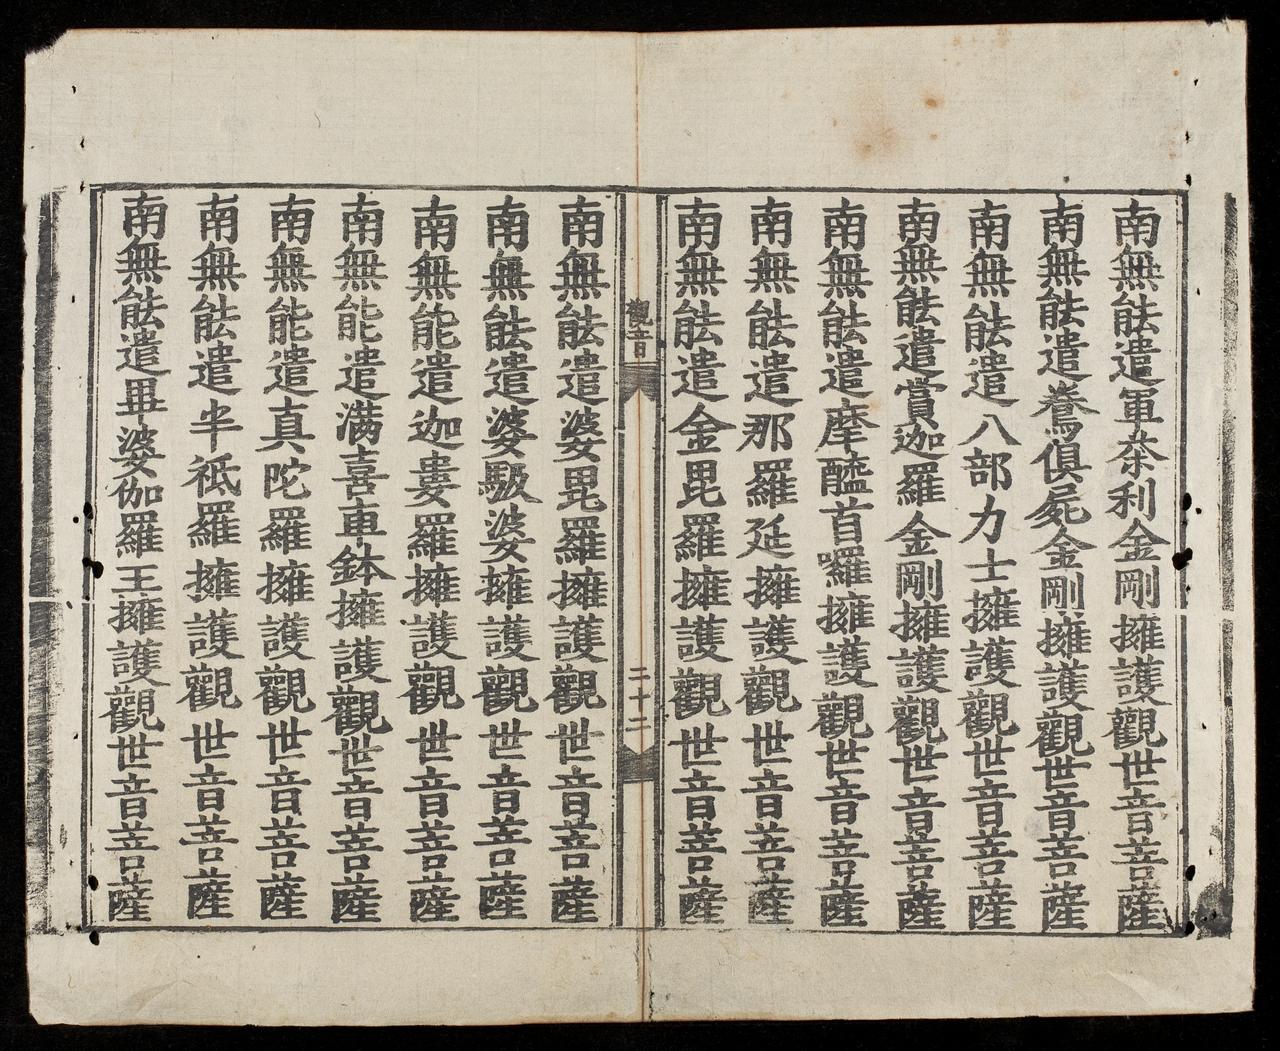 南無能遣軍茶利金剛擁護觀世音菩薩
南無能遣鴦俱屍金剛擁護觀世音菩薩
南無能遣八部力士擁護觀世音菩薩
南無能遣賞迦羅金剛擁護觀世音菩薩
南無能遣摩醯首囉擁護觀世音菩薩
南無能遣那羅延擁護觀世音菩薩
南無能遣金毘羅擁護觀世音菩薩
觀音
二十二
南無能遣婆毘羅擁護觀世音菩薩
南無能遣婆馺婆擁護觀世音菩薩
南無能遣迦婁羅擁護觀世音菩薩
南無能遣滿喜車鉢擁護觀世音菩薩
南無能遣真陀羅擁護觀世音菩薩
南無能遣半祗羅擁護觀世音菩薩
南無能遣畢婆伽羅王擁護觀世音菩薩